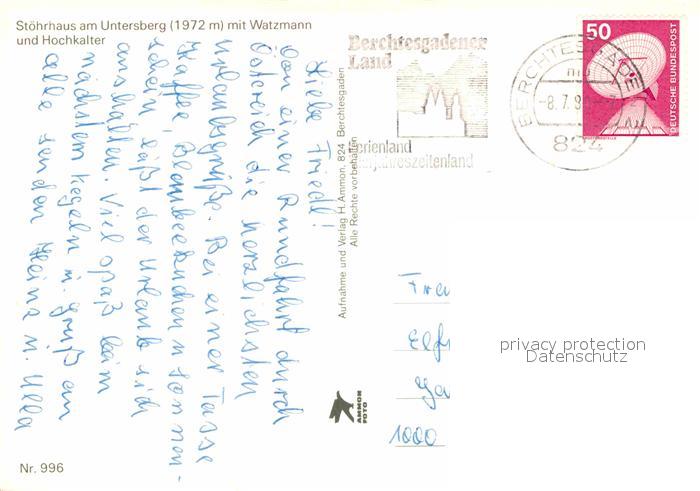 Stöhrhaus am Untersberg (1972 m) mit Watzmann
und Hochkalter
Liebe Friedl!
Von einer Rundfahrt durch
Östereich die herzlichsten
Urlaubsgrüße. Bei einer Tasse
Kaffee, Blaubeerkuchen u. Sonnen-
schein läßt der Urlaub sich
aushalten. Viel Spaß beim
nächsten Kegeln u. Gruß an
alle senden Heinz u. Ulla
Nr. 996
Aufnahme und Verlag H. Ammon, 824 Berchtesgaden
Alle Rechte vorbehalten
AMMON
FOTO
Berchtesgadener
Land
erienland
jahreszeitenland
BERCHTESGADE
-8.7.8
824
50
DEUTSCHE BUNDESPOST
Frau
Elf
1000
privacy protection
Datenschutz